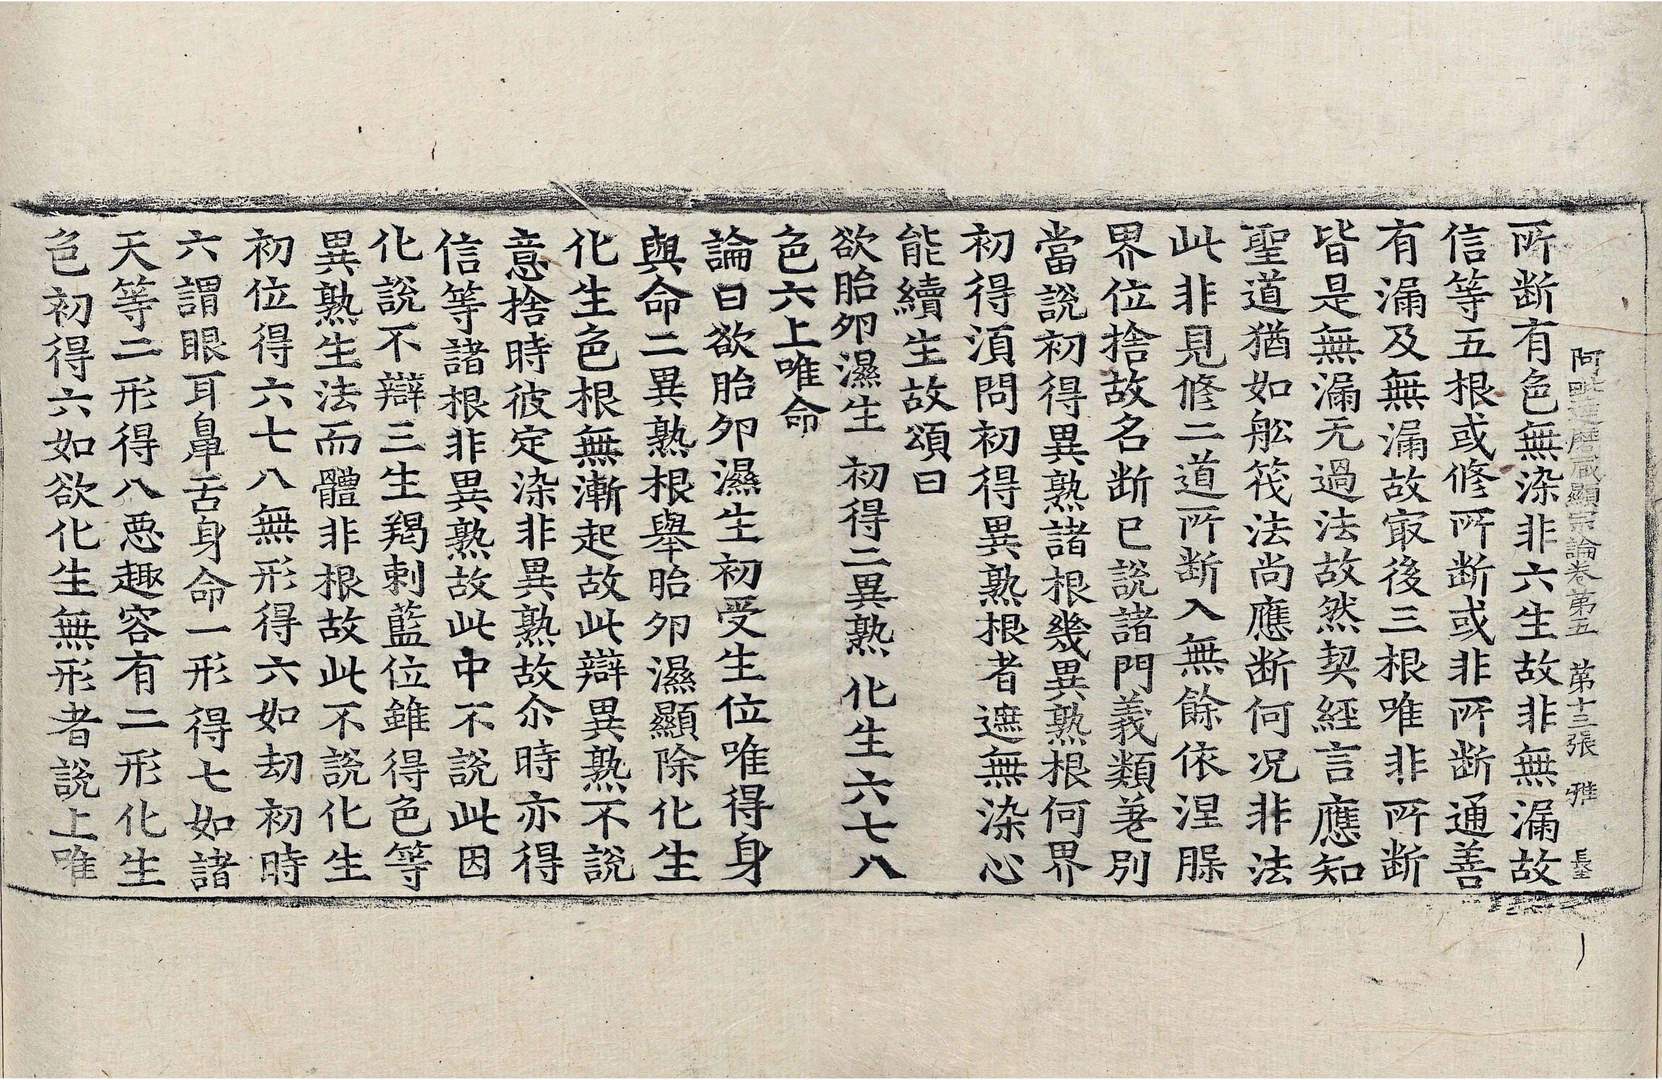 阿毗達磨藏顯宗論卷第五 第十三張 雅
所断有色無染非六生故非無漏故
信等五根或修所断或非所断通善
有漏及無漏故㝡後三根唯非所断
皆是無漏无過法故然契経言應知
聖道猶如舩筏法尚應断何况非法
此非見修二道所断入無餘依涅槃
界位捨故名断已說諸門義類差別
當說初得異熟諸根幾異熟根何界
初得湏問初得異熟根者遮無染心
能續生故頌曰
欲胎卵濕生 初得二異熟 化生六七八
色六上唯命
論曰欲胎卵濕生初受生位唯得身
與命二異熟根舉胎卵濕顯除化生
化生色根無漸起故此辯異熟不說
意捨時彼定染非異熟故尒時亦得
信等諸根非異熟故此中不說此因
化說不辯三生羯剌藍位雖得色等
異熟生法而體非根故此不說化生
初位得六七八無形得六如劫初時
六謂眼耳鼻舌身命一形得七如諸
天等二形得八惡趣容有二形化生
色初得六如欲化生無形者說上唯